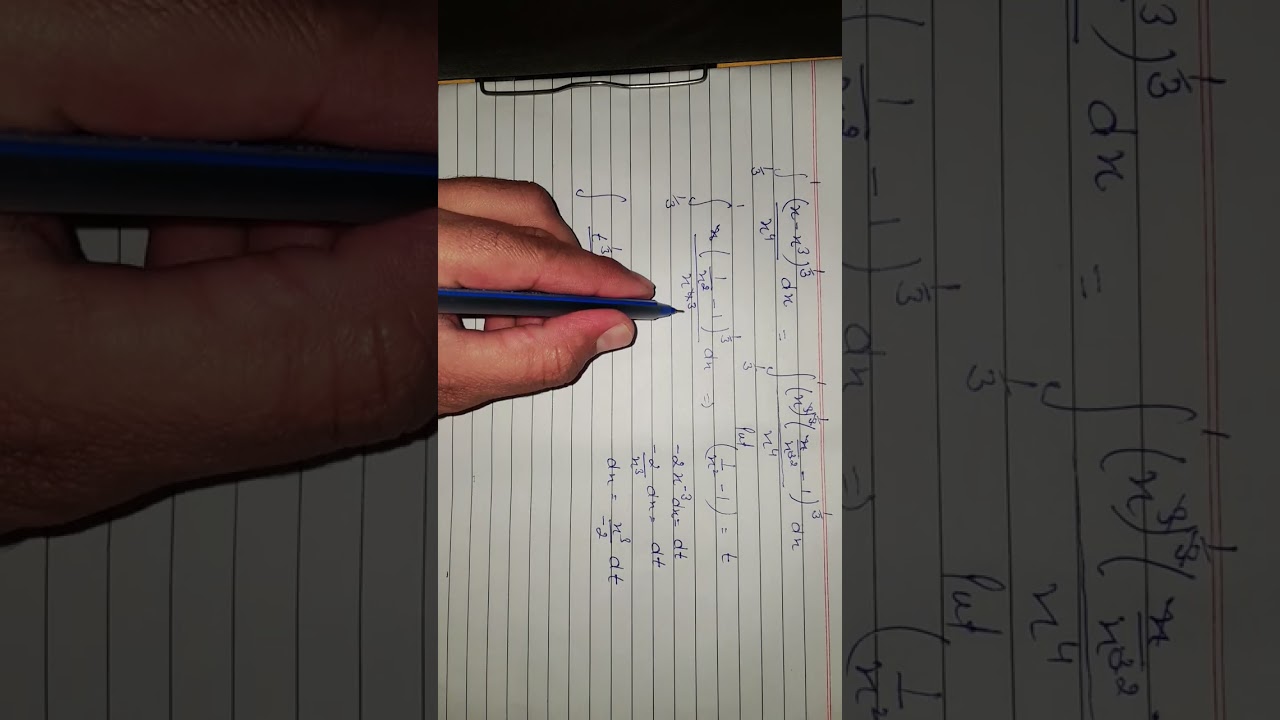 ∫_{1/3}^{1} (x-x³)^{1/3} / x⁴ dx = ∫_{1/3}^{1} (x³)^{1/3} (x/x³² - 1)^{1/3} / x⁴ dx
∫_{1/3}^{1} x (1/x² - 1)^{1/3} / x⁴³ dx ⇒ put (1/x² - 1) = t
-2x⁻³ dx = dt
-2/x³ dx = dt
∫ t^{1/3} dx = x³/-2 dt